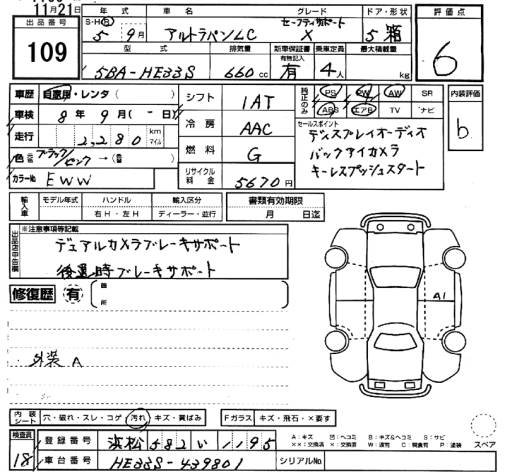 11月21日
出品番号
109
年式 車名 グレード ドア・形状 評価点
S・H・R セーフティサポート
5 9月 アルトラパンLC X 5 箱 6
型式 排気量 新車保証書 乗車定員 最大積載量
有無記入
5BA-HE33S 660 cc 有 4人 kg
車歴 自家用・レンタ( )
車検 8年 9月(-日)
走行 2,280 km マイル
色 元色 ブラック/ピンク →(替 )
カラーNo EWW
シフト 1AT
冷房 AAC
燃料 G
リサイクル料金 5670円
純正のみ PS PW AW SR
ABS エアB TV ナビ
セールスポイント
ディスプレイオーディオ
バックアイカメラ
キーレスプッシュスタート
内装評価
b
輸入車 モデル年式 ハンドル 輸入区分
年 右H・左H ディーラー・並行
書類有効期限
月 日迄
出品店申告欄
※注意事項等記載
デュアルカメラブレーキサポート
後退時ブレーキサポート
修復歴 有 箇所
A1
外装 A
内装シート 穴・破れ・スレ・コゲ 汚れ キズ・黄ばみ
Fガラス キズ・飛石・×要す
検査員
18
登録番号 浜松582い1195
車台番号 HE33S-439801
シリアルNo
A:キズ U:ヘコミ B:キズ&ヘコミ S:サビ
××:交換済 ×:交換要 W:波有 C:腐食有 P:塗装
スペア